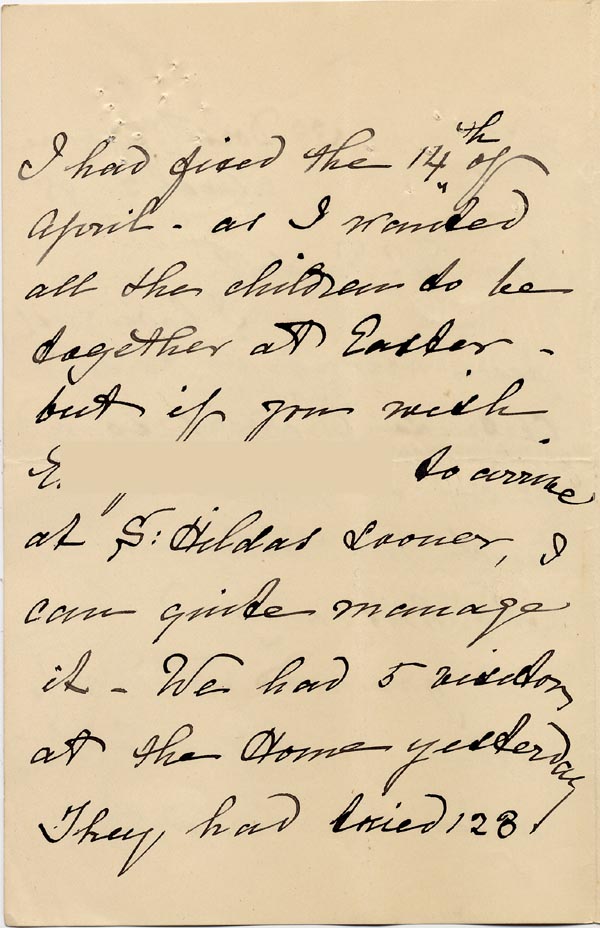 I had fixed the 14th of
April - as I wanted
all the children to be
together at Easter -
but if you wish
E. to arrive
at S: Hildas sooner, I
can quite manage
it - We had 5 visitors
at the Home yesterday
They had tried 128.